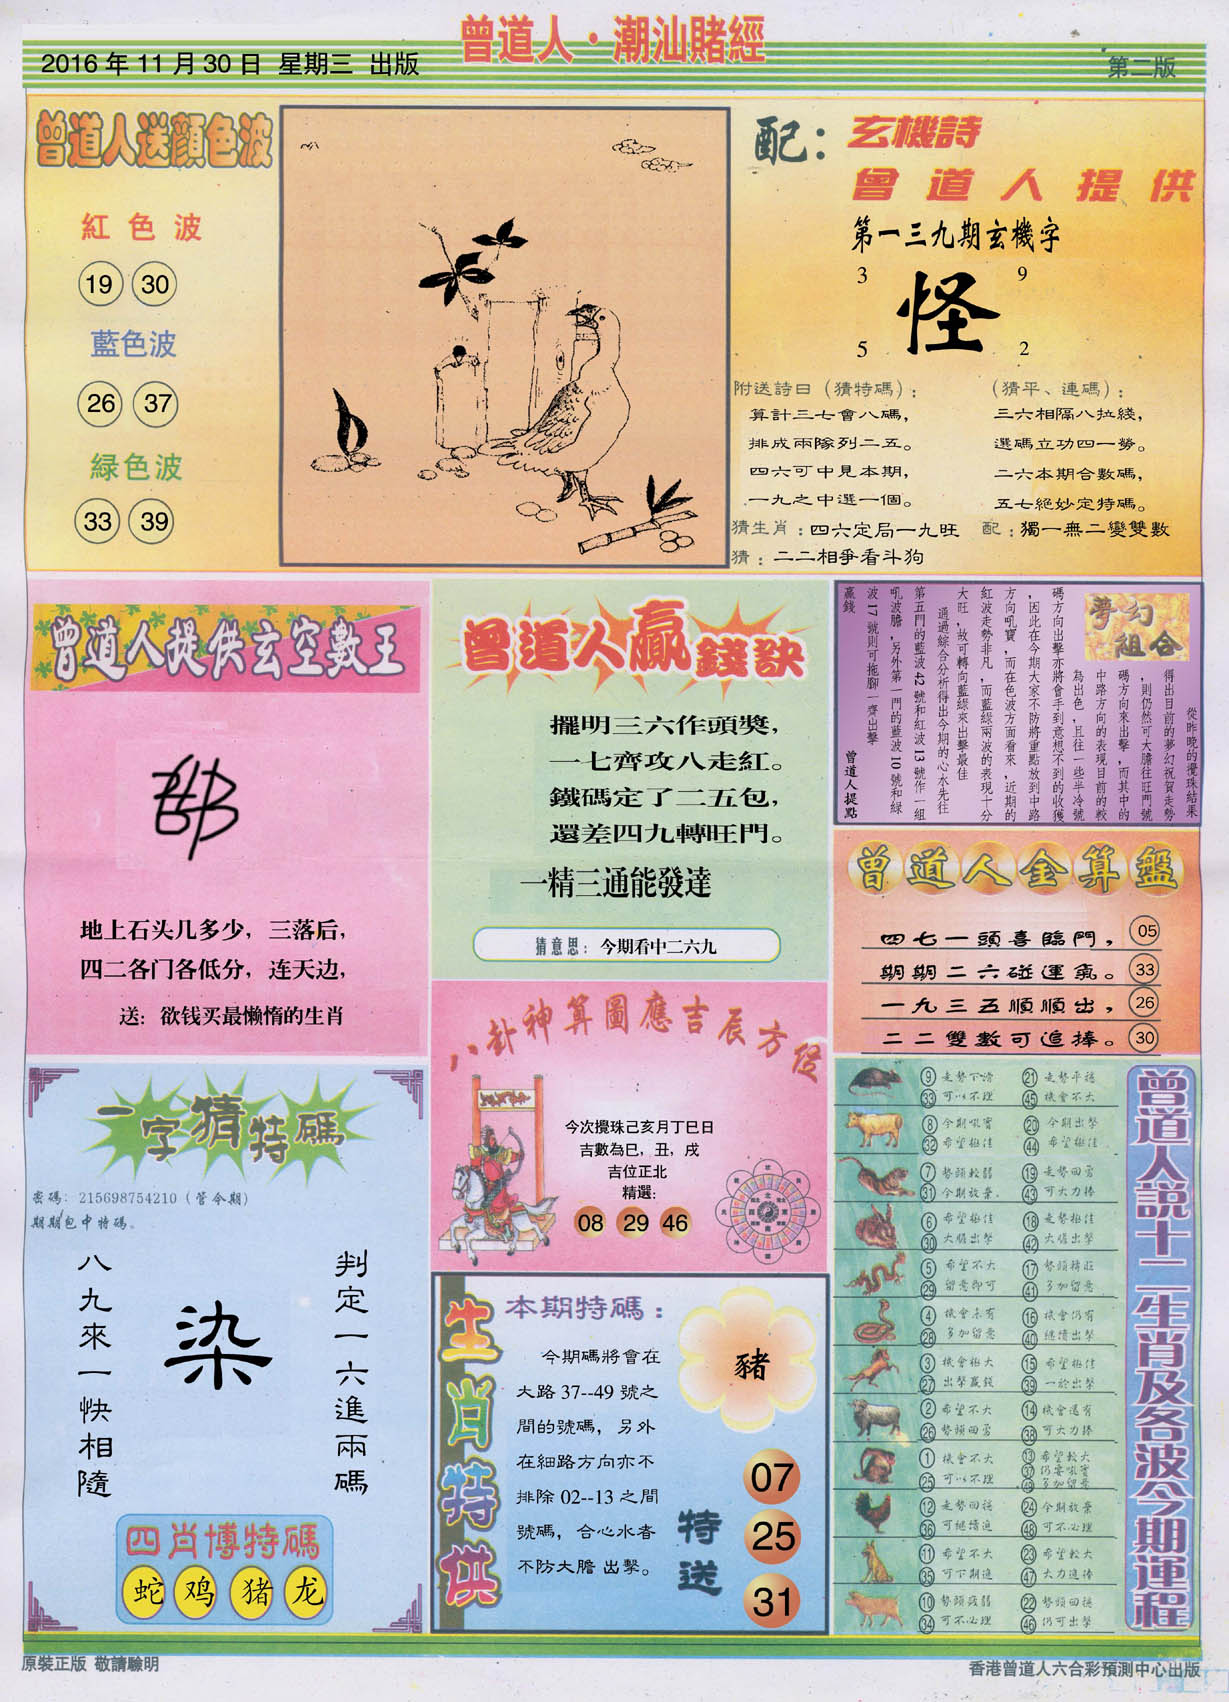 曾道人·潮汕賭經
2016 年 11 月 30 日 星期三 出版
第二版
曾道人送顏色波
紅色波
19 30
藍色波
26 37
緑色波
33 39
配：玄機詩
曾道人提供
第一三九期玄機字
3 9
怪
5 2
附送詩曰（猜特碼）：
算計三七會八碼，
排成兩隊列二五。
四六可中見本期，
一九之中選一個。
（猜平、連碼）：
三六相隔八拉綫，
選碼立功四一勞。
二六本期合數碼，
五七絕妙定特碼。
猜生肖：四六定局一九旺
配：獨一無二變雙數
猜：二二相爭看斗狗
曾道人提供玄空數王
地上石头几多少，三落后，
四二各门各低分，连天边，
送：欲钱买最懒惰的生肖
曾道人贏錢訣
擺明三六作頭獎，
一七齊攻八走紅。
鐵碼定了二五包，
還差四九轉旺門。
一精三通能發達
猜意思：今期看中二六九
夢幻組合
從昨晚的攪珠結果
得出目前的夢幻祝賀走勢
，則仍然可大膽往旺門號
碼方向來出擊，而其中的
中路方向的表現目前的較
為出色，且往一些半冷號
碼方向出擊亦將會手到意想不到的收獲
，因此在今期大家不防將重點放到中路
方向吼寶，而在色波方面看來，近期的
紅波走勢非凡，而藍綠兩波的表現十分
大旺，故可轉向藍綠來出擊最佳
通過綜合分析得出今期的心水先往
第五門的藍波 42 號和紅波 13 號作一組
吼波膽，另外第一門的藍波 10 號和綠
波 17 號則可拖腳一齊出擊
贏錢
曾道人提點
曾道人金算盤
四七一頭喜臨門， 05
期期二六碰運氣。 33
一九三五順順出， 26
二二雙數可追捧。 30
八卦神算圖應吉辰方位
今次攪珠己亥月丁巳日
吉數為巳，丑，戌
吉位正北
精選：
08 29 46
一字猜特碼
密碼：215698754210（管令期）
期期包中特碼。
判定一六進兩碼
染
八九來一快相隨
四肖博特碼
蛇 鸡 猪 龙
生肖特供
本期特碼：
今期碼將會在
大路 37--49 號之
間的號碼，另外
在細路方向亦不
排除 02--13 之間
號碼，合心水者
不防大膽 出擊。
豬
特送
07
25
31
曾道人說十二生肖及各波今期運程
9 走勢下滑 21 走勢平穩
33 可以不理 45 機會不大
8 今期吼寶 20 今期出擊
32 希望極佳 44 希望極佳
7 勢頭較弱 19 走勢回勇
31 今期放棄。 43 可大力捧
6 希望極佳 18 走勢極佳
30 大膽出擊 42 大膽出擊
5 希望不大 17 勢頭轉旺
29 留意即可 41 多加留意
4 機會未有 16 機會仍有
28 多加留意 40 繼續出擊
3 機會極大 15 希望極佳
27 出擊贏錢 39 一於出擊
2 希望不大 14 機會還有
26 勢頭回勇 38 可大力捧
1 機會不大 13 希望較大
25 可以不理 37 仍要吼實
49 多加留意
12 走勢回穩 24 今期放棄
36 可繼續追 48 可不必理
11 希望不大 23 希望較大
35 可下期追 47 大力追捧
10 勢頭疲弱 22 勢頭回穩
34 可不必理 46 仍可出擊
原裝正版 敬請驗明
香港曾道人六合彩預測中心出版